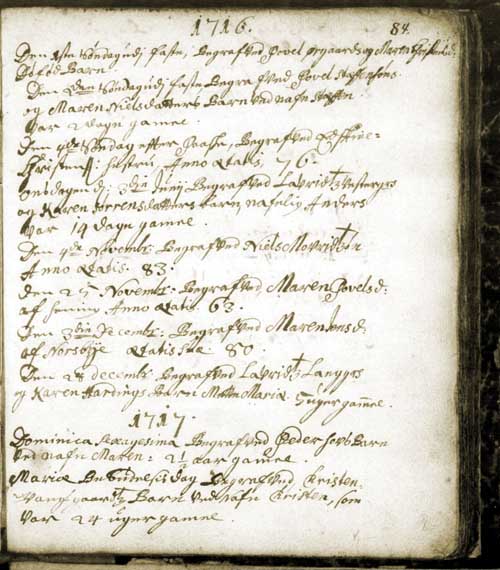 1716. 84.
Den 1ste Søndag udj faste, Begrafved Povel ørgaards og Maren
Barn.
Den 2den Søndag udj faste Begrafved Povel Steffensøns
og Maren Nielsdatters Barn ved nafn Steffen
var 2 dagn gamel.
Den Søndag effter Paaske, Begrafved
Christen hustrue, Anno Ætatis, 76.
onsdagen d: 3die Junij Begrafved Lavridtz Vestergrs
og Karen Sørrensdatters barn nafnlig Anders
var 14 dagn gamel.
Den 4de Novembr: Begrafved Niels Movridtsøn
Anno Ætatis. 83.
Den 25 Novembr: Begrafved, Maren Povelsd:
af Anno Ætatis 63.
Den 3die Decembr: Begrafved Maren Jensd:
af Ætatis Suæ 80.
Den 28 decembr: Begrafved Lavridtz Langgrs
og Karen Hardings Barn Mette Maria 5 uger gamel.
1717.
Dominica Sexagesima Begrafved Peder Barn
ved nafn Maren: 2½ aar gamel.
Mariæ Besøgelsis dag Begrafved Christen
Barn ved Nafn Christen, som
var 24 uger gamel.